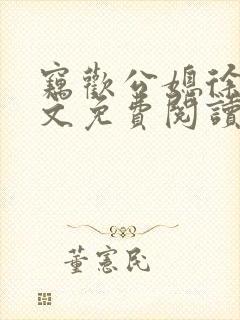 竊歡公媳徐
文免費閱讀
董憲民